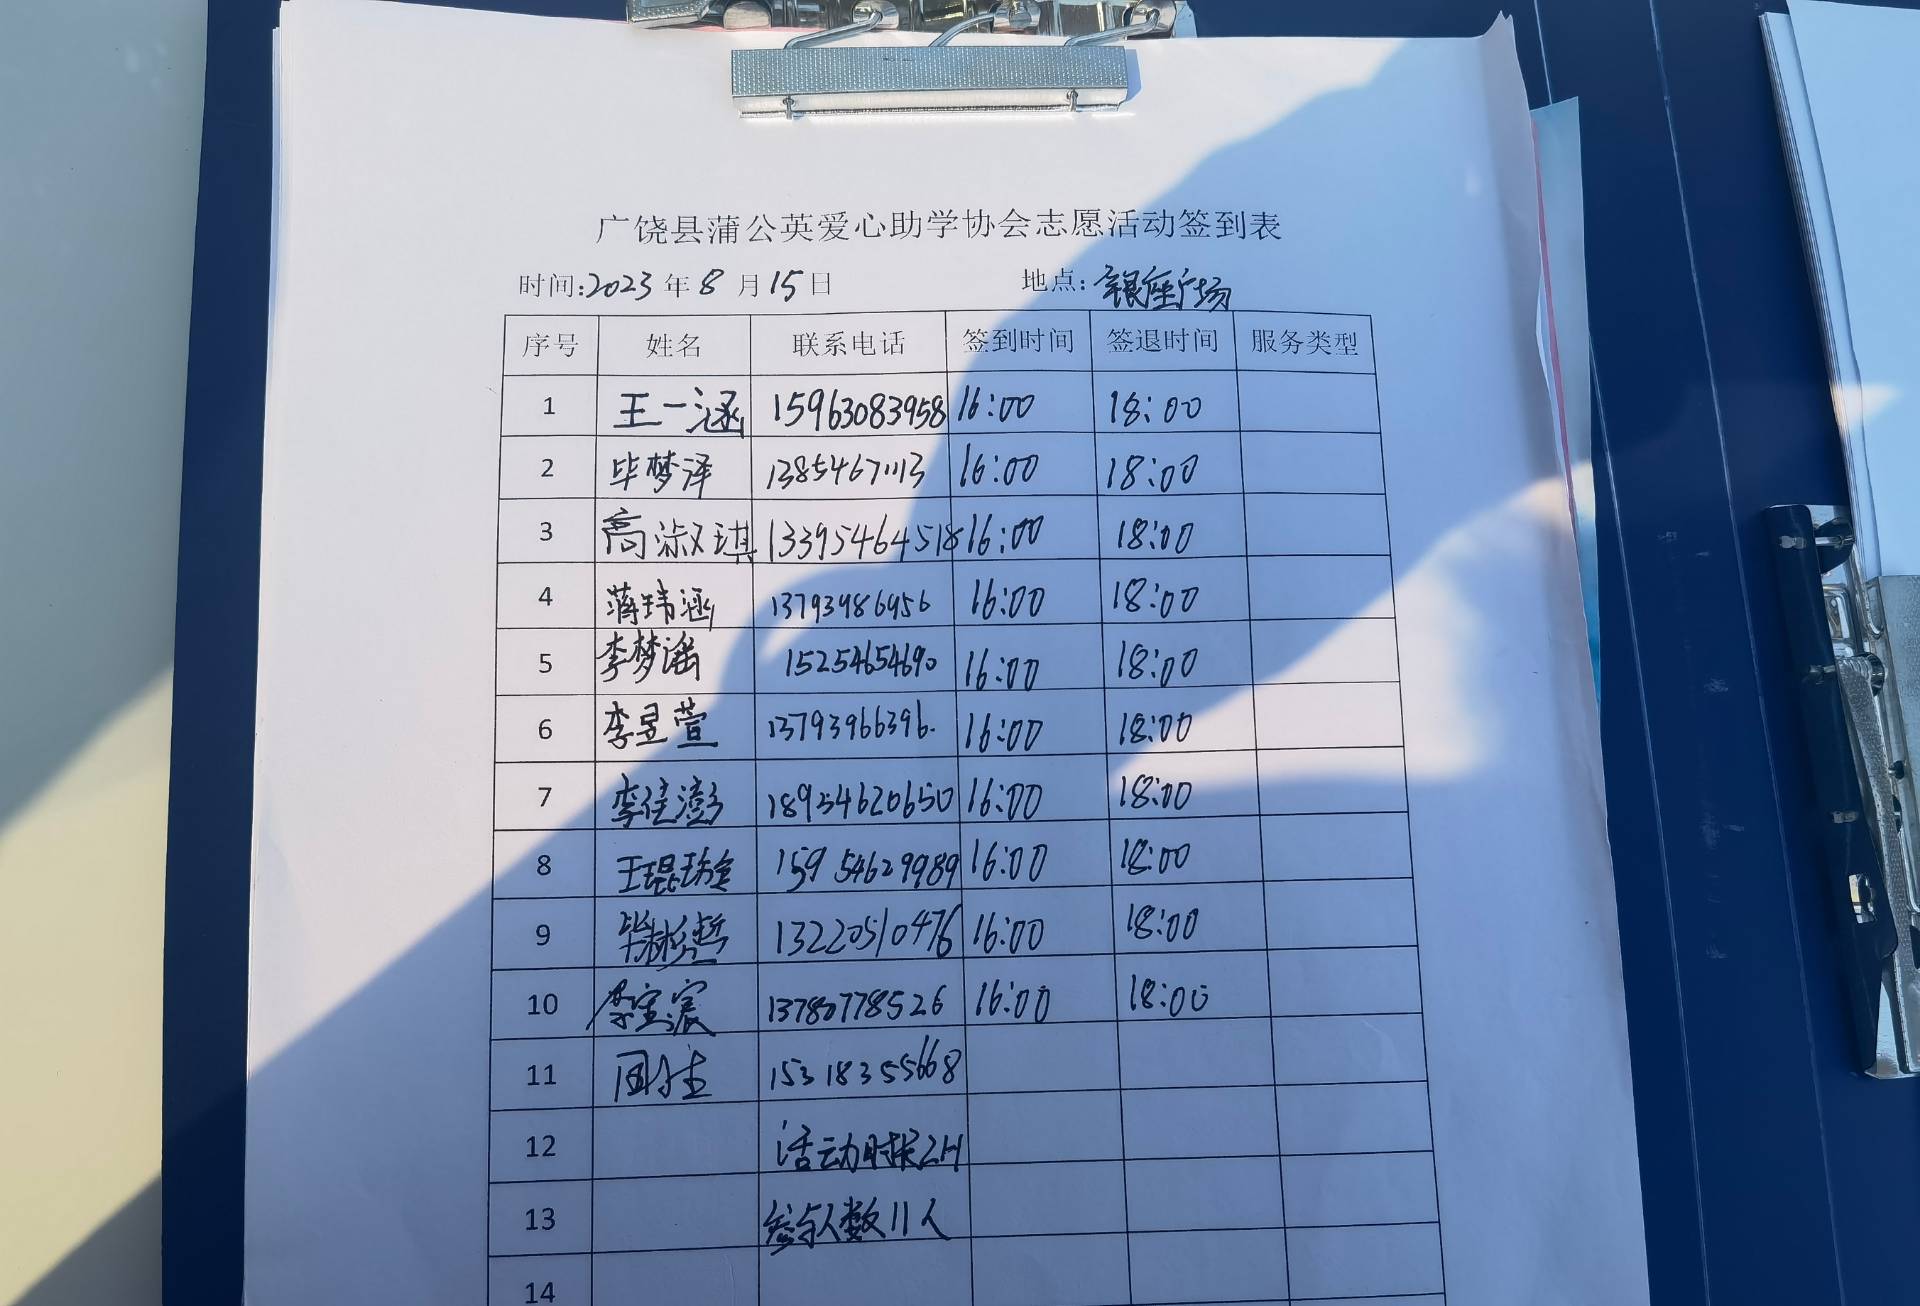 广饶县蒲公英爱心助学协会志愿活动签到表
时间:2023年8月15日 地点:银座广场
序号 姓名 联系电话 签到时间 签退时间 服务类型
1 王一涵 15963083958 16:00 18:00
2 毕梦泽 13854671113 16:00 18:00
3 高淑琪 13395464518 16:00 18:00
4 蒋玮涵 13793986956 16:00 18:00
5 李梦涵 15254654690 16:00 18:00
6 李昱萱 13793966396. 16:00 18:00
7 李佳澎 18954620650 16:00 18:00
8 王琨 15954629989 16:00 18:00
9 毕彬哲 13220510476 16:00 18:00
10 李宝宸 13780778526 16:00 18:00
11 15318355668
12 活动时长2H
13 参与人数11人
14